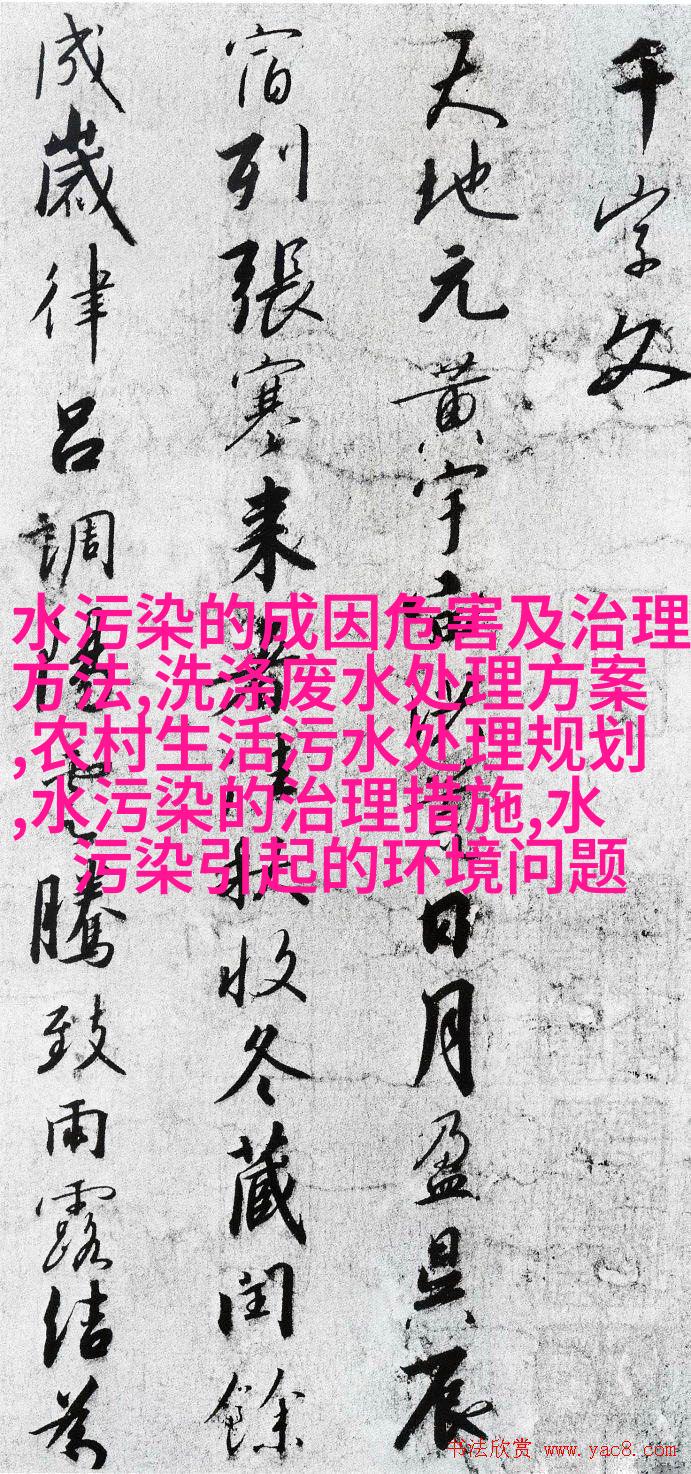 千字文
天地元黄宇宙日月盈昃辰
宿列張寒来暑往秋收冬藏閏餘
成歲律吕調陽騰致雨露結為
水污染的成因危害及治理
方法,洗涤废水处理方案
,农村生活污水处理规划
,水污染的治理措施,水
污染引起的环境问题
书法欣赏 www.yac8.com